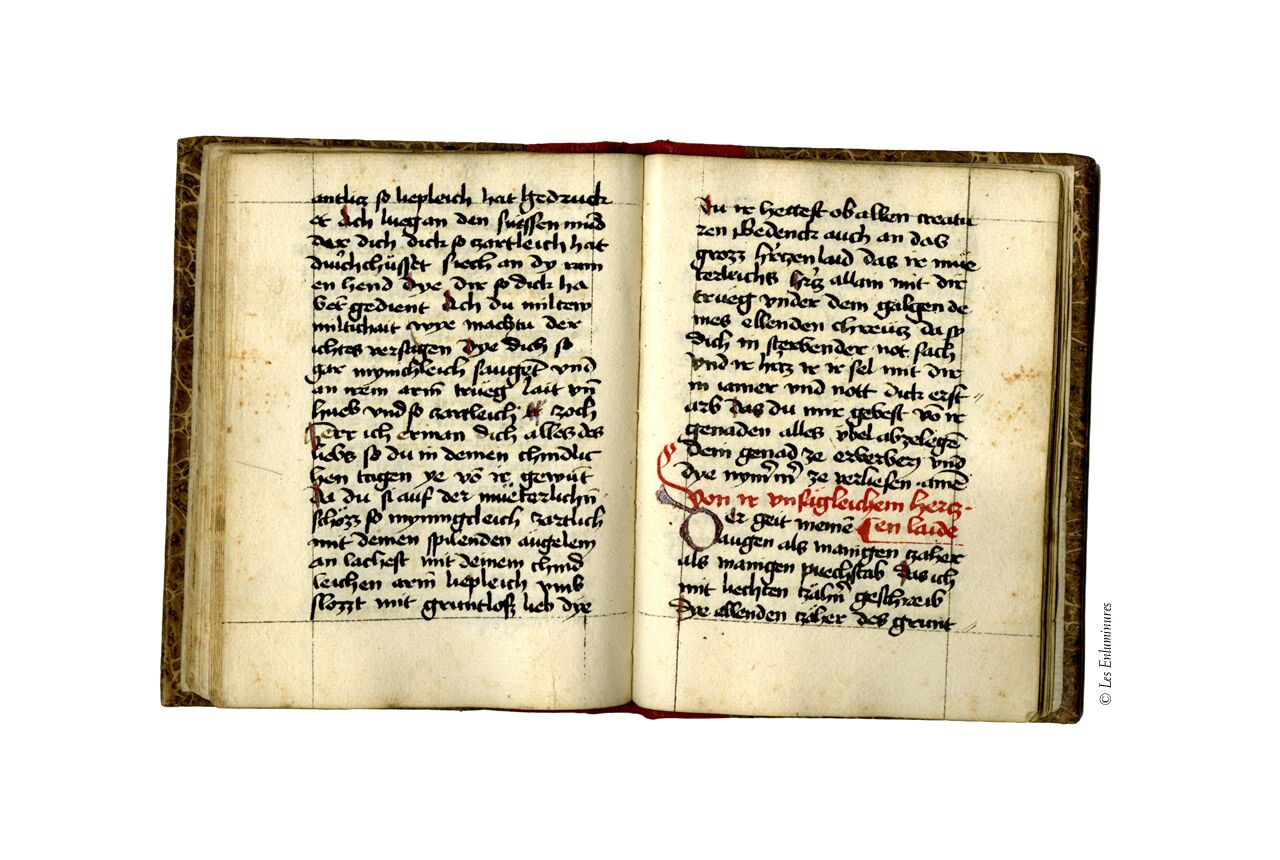 antlicz so lieplich hat gedruck
et Ich lueg an den suessen mūd
der dich dick so zartleich hat
durchchüsset siech an dy rain
en hend dye dir so dick ha
bēt gedient Ach du miltew
miltichait wye machtu der
ichtes versagen dye dich so
gar mynichleich saugēt vnd
an irem arm̄ trueg lait vn̄
hueb vnd so zartleich zoch
Herr ich erman dich alles des
liebs so du in deinen chindlic
hen tagen ye vō ir gewūt
Da du si auf der müeterlichn̄
schözz so mynnigcleich zartlich
mit deinen spilenden äugelem
an lachest mit deinem chind
leichen arm̄ liepleich vmb
slozzt mit gruntloss lieb dye
du ir hettest ob allen creatu
ren Bedenck auch an das
grozz hrczen laid das ir müe
terleichs hrcz allain mit dir
trueg vnder dem galgen de
ines ellenden chreucz da sy
dich in sterbender not sach
vnd ir hrcz ir ir sel mit dir
in iamer vnd nott dick erst
arb das du mir gebest vō ir
genaden alles vbel abzelegē
dein genad ze erberben vnd
dye nym̄m̄ ze verliesen amē
von ir vnsägleichem hercz
en laide
Wer geit meinē
augen als manigen zaher
als manigen puechstab das ich
mit liechten zähn̄ geschreib
Dye ellenden zäher des grunt
© Les Enluminures